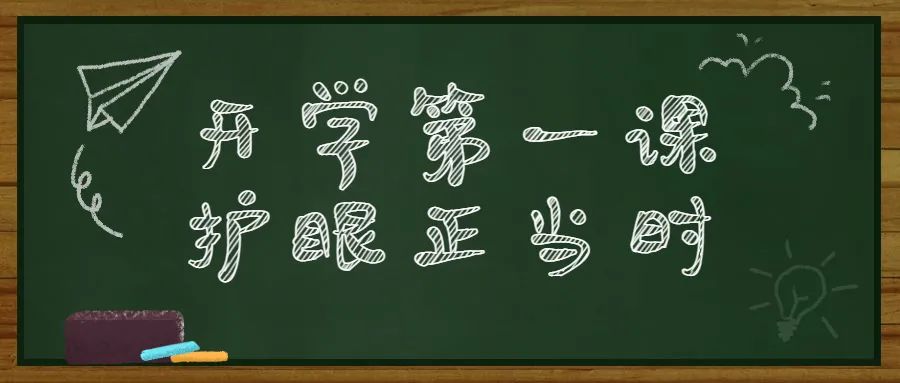 开学第一课
护眼正当时